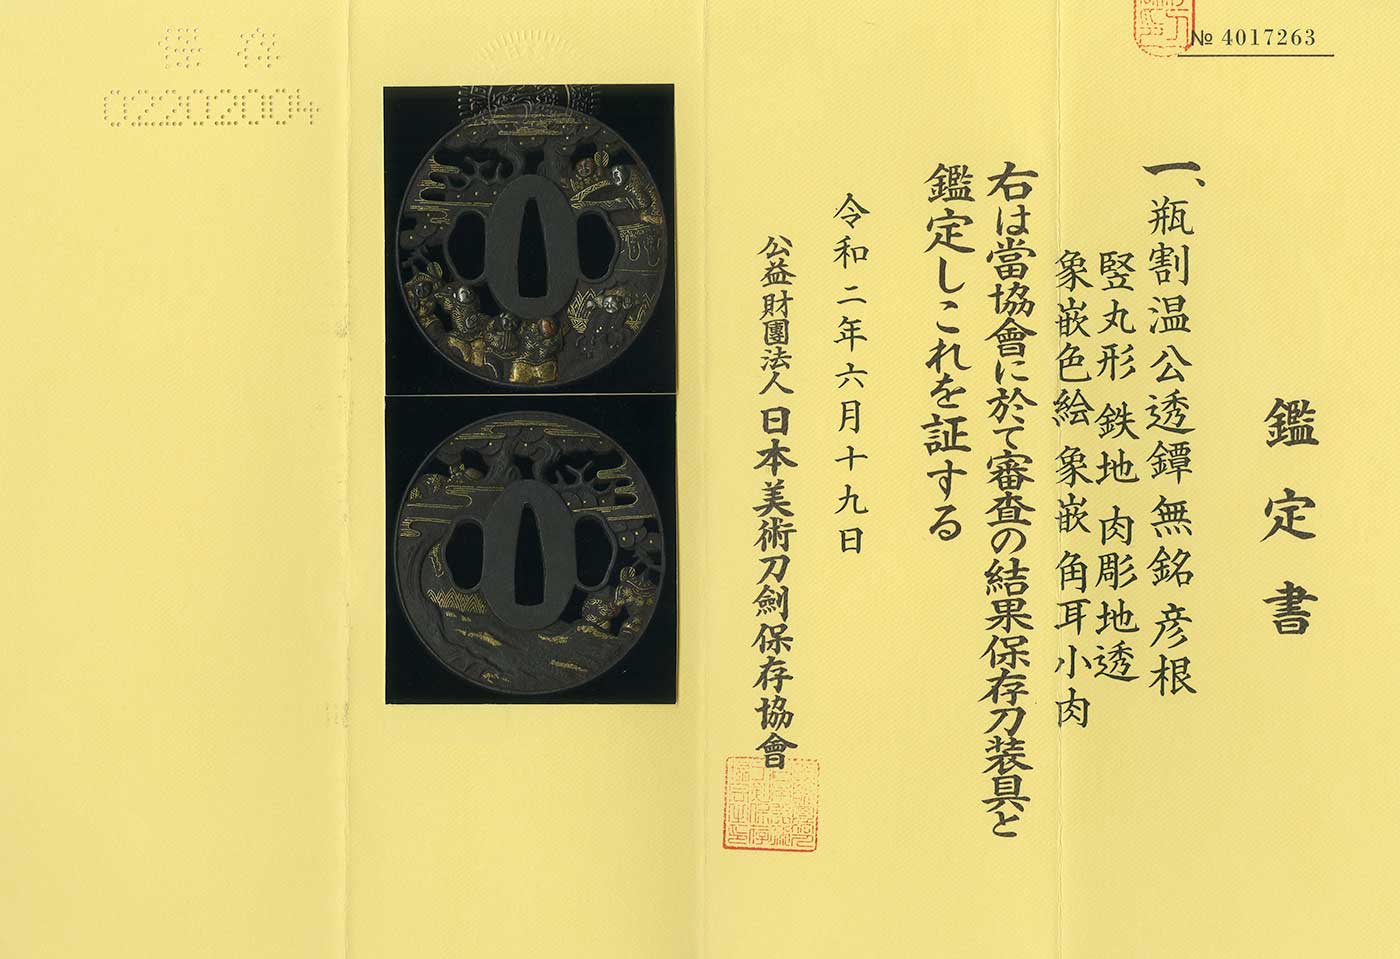 № 4017263
鑑定書
一、瓶割温公透鐔 無銘 彦根
竪丸形 鉄地 肉彫地透
象嵌色絵 象嵌 角耳小肉
右は當協會に於て審査の結果保存刀装具と
鑑定しこれを証する
令和二年六月十九日
公益財團法人 日本美術刀劍保存協會
保存
02202004